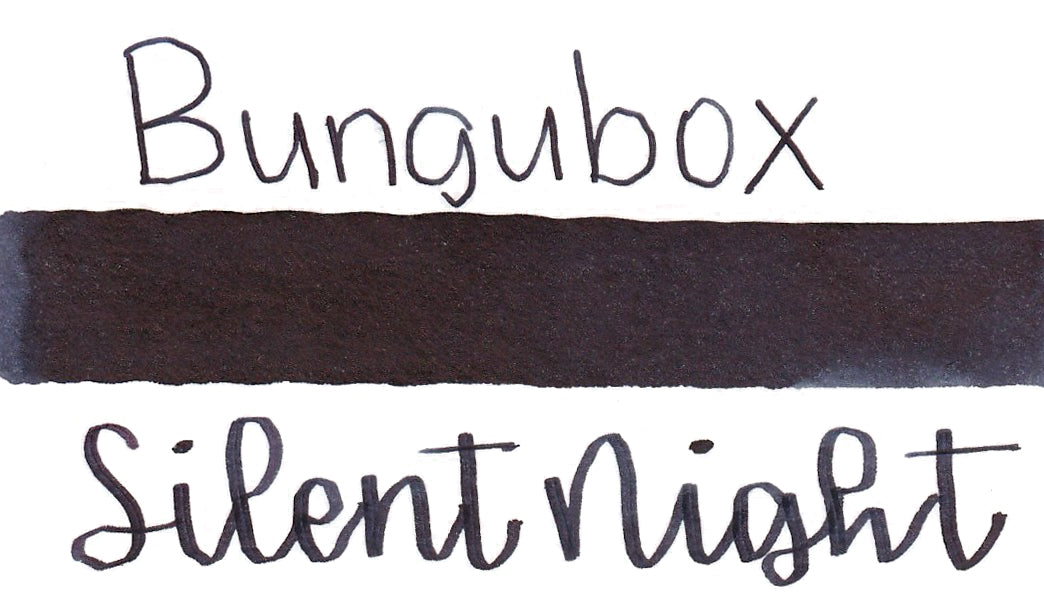 Bungubox
Silent Night